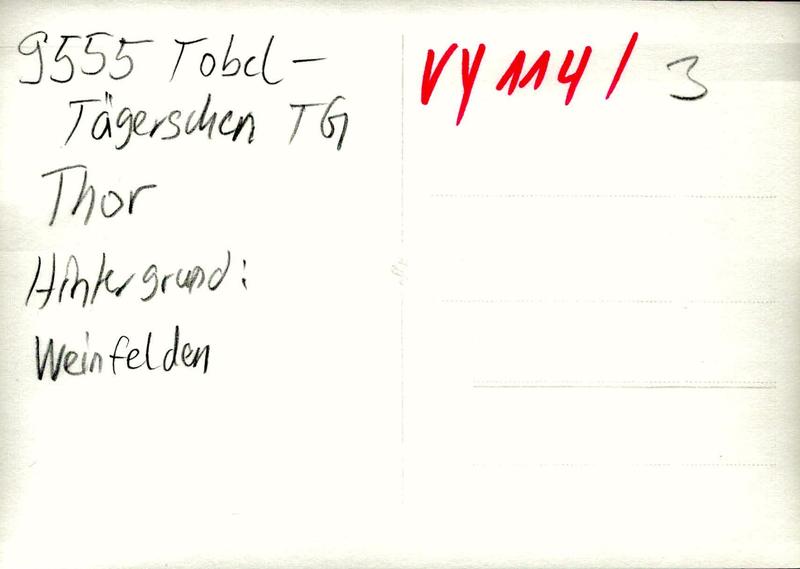 9555 Tobel-
Tägerschen TG
Thor
Hintergrund:
Weinfelden
VY 114 / 3